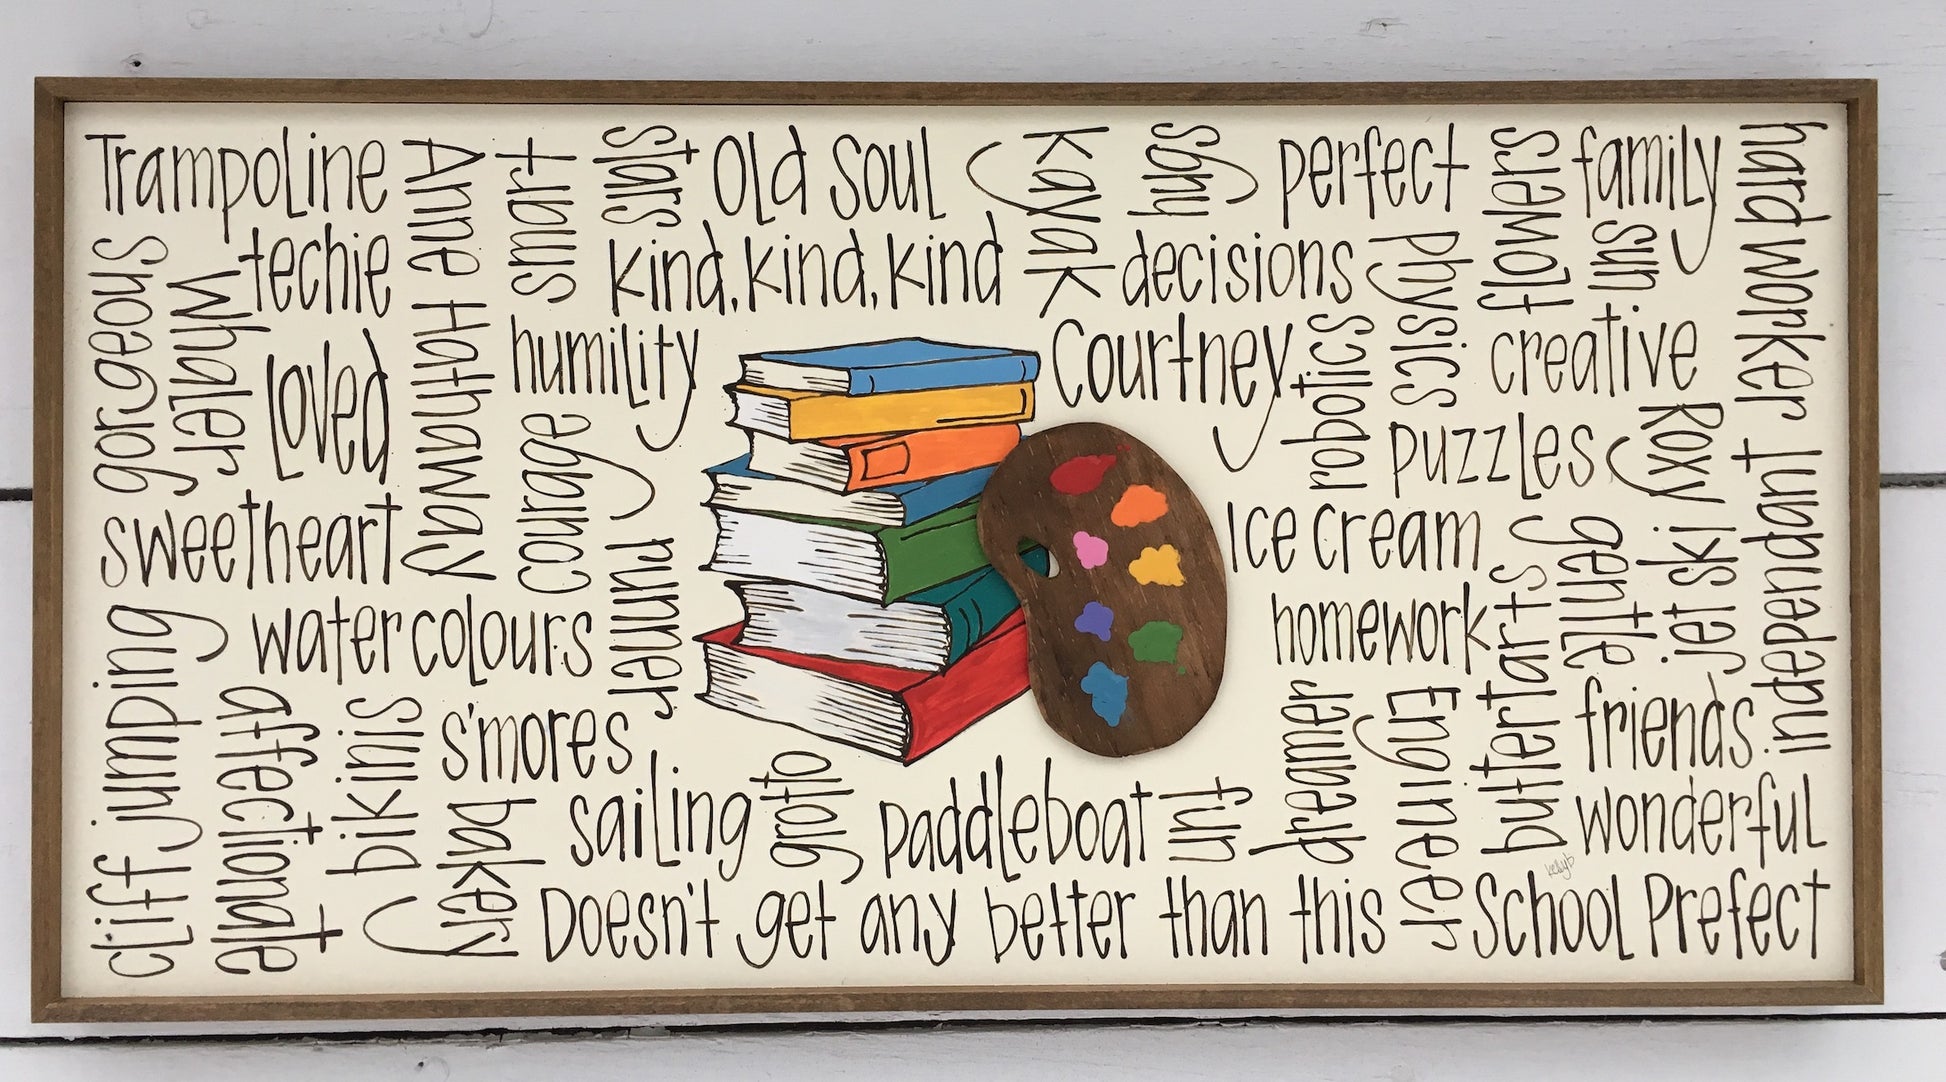 Trampoline
Anne Hathaway
smart
stars
Old Soul
Kayak
shy
perfect
flowers
family
hard worker
gorgeous
Whaler
techie
Kind, Kind, Kind
decisions
physics
sun
Loved
humility
Courtney
robotics
creative
sweetheart
courage
puzzles
Roxy
independent
Ice cream
gentle
jet ski
cliff jumping
watercolours
runner
homework
butter tarts
affectionate
bikinis
s'mores
dreamer
Engineer
friends
bakery
sailing
grotto
paddleboat
fun
wonderful
kellyb
Doesn't get any better than this
School Prefect